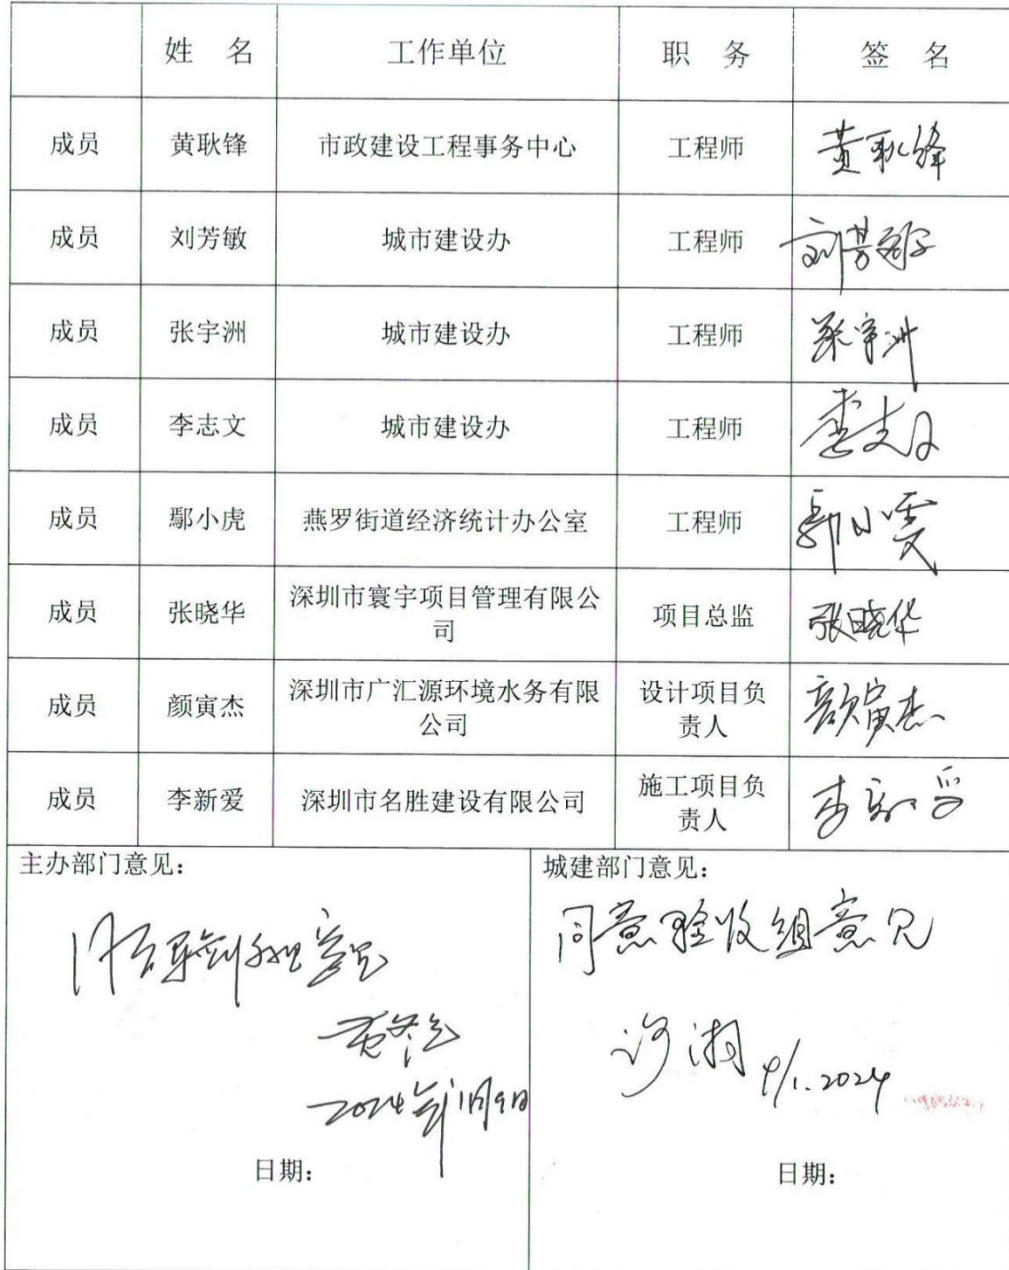 姓 名 工作单位 职 务 签 名
成员 黄耿锋 市政建设工程事务中心 工程师 黄耿锋
成员 刘芳敏 城市建设办 工程师 刘芳敏
成员 张宇洲 城市建设办 工程师 张宇洲
成员 李志文 城市建设办 工程师 李志文
成员 鄢小虎 燕罗街道经济统计办公室 工程师 鄢小虎
成员 张晓华 深圳市寰宇项目管理有限公
司 项目总监 张晓华
成员 颜寅杰 深圳市广汇源环境水务有限
公司 设计项目负
责人 颜寅杰
成员 李新爱 深圳市名胜建设有限公司 施工项目负
责人 李新爱
主办部门意见：
2024年1月9日
日期：
城建部门意见：
同意验收组意见
9/1.2024
日期：